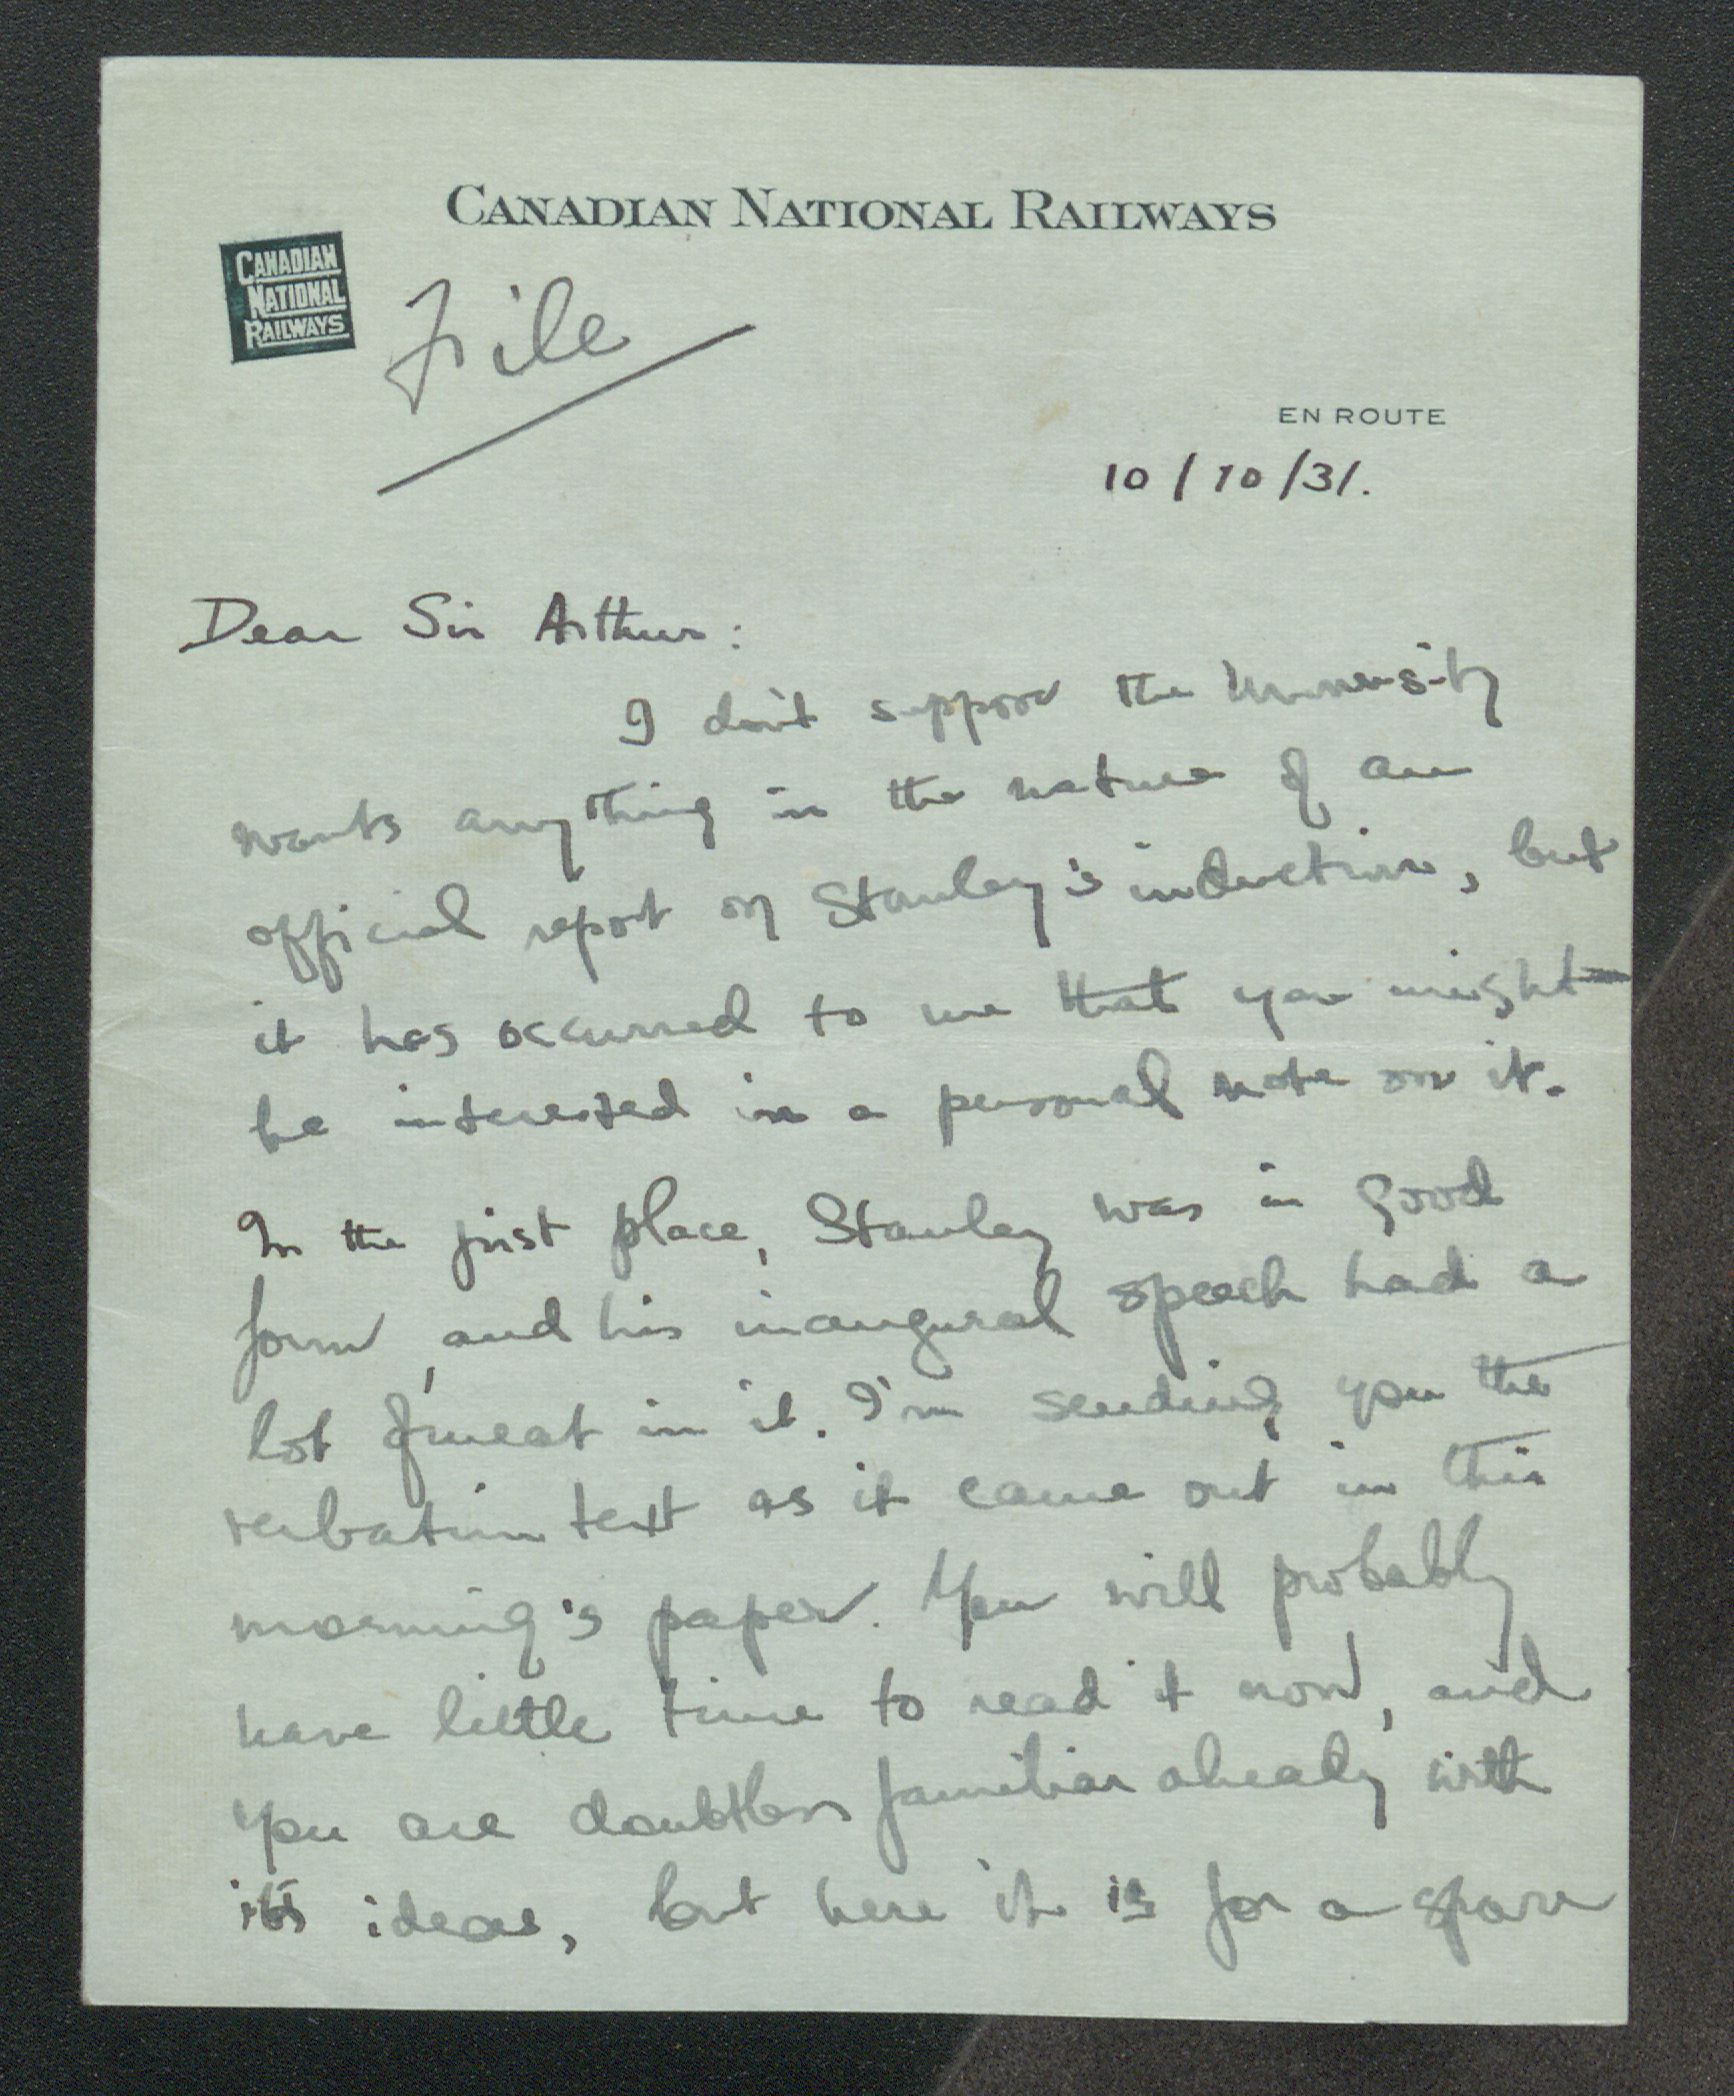 CANADIAN NATIONAL RAILWAYS
CANADIAN
NATIONAL
RAILWAYS
File
EN ROUTE
10/10/31.
Dear Sir Arthur:
I don't suppose the University
wants anything in the nature of an
official report on Stanley's induction, but
it has occurred to me that you might
be interested in a personal note on it.
In the first place, Stanley was in good
form, and his inaugural speech had a
lot of meat in it. I'm sending you the
verbatim text as it came out in this
morning's paper. You will probably
have little time to read it now, and
you are doubtless familiar already with
its ideas, but here it is for a spare